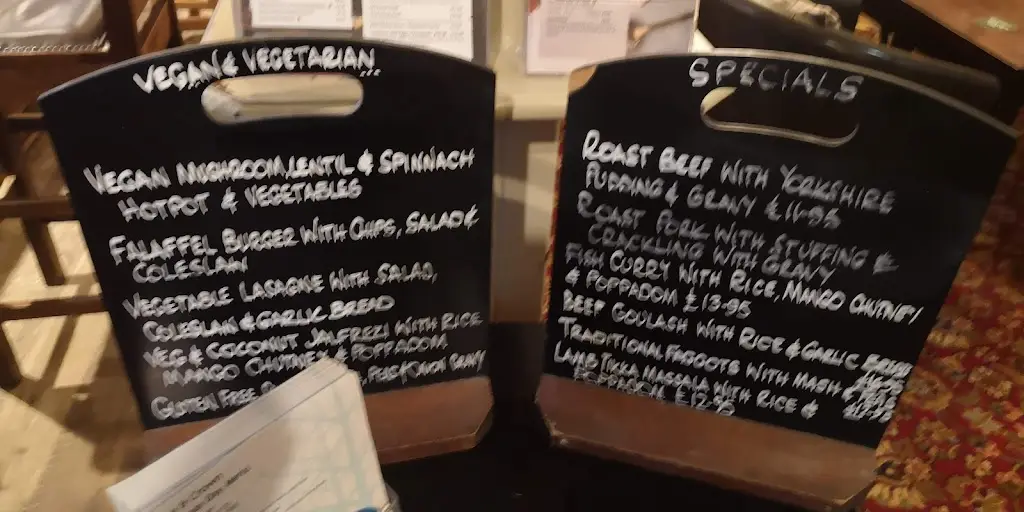 VEGAN & VEGETARIAN
VEGAN MUSHROOM, LENTIL & SPINNACH
HOTPOT & VEGETABLES
FALAFFEL BURGER WITH CHIPS, SALAD &
COLESLAW
VEGETABLE LASAGNE WITH SALAD,
COLESLAW & GARLIC BREAD
VEG & COCONUT JALFREZI WITH RICE
MANGO CHUTNEY & POPPADOM
GLUTEN FREE
SPECIALS
ROAST BEEF WITH YORKSHIRE
PUDDING & GRAVY £11-95
ROAST PORK WITH STUFFING &
CRACKLING WITH GRAVY
FISH CURRY WITH RICE, MANGO CHUTNEY
& POPPADOM £13-95
BEEF GOULASH WITH RICE & GARLIC BREAD
TRADITIONAL FAGGOTS WITH MASH &
LAMB TIKKA MASSALA WITH RICE &
POPPADOM